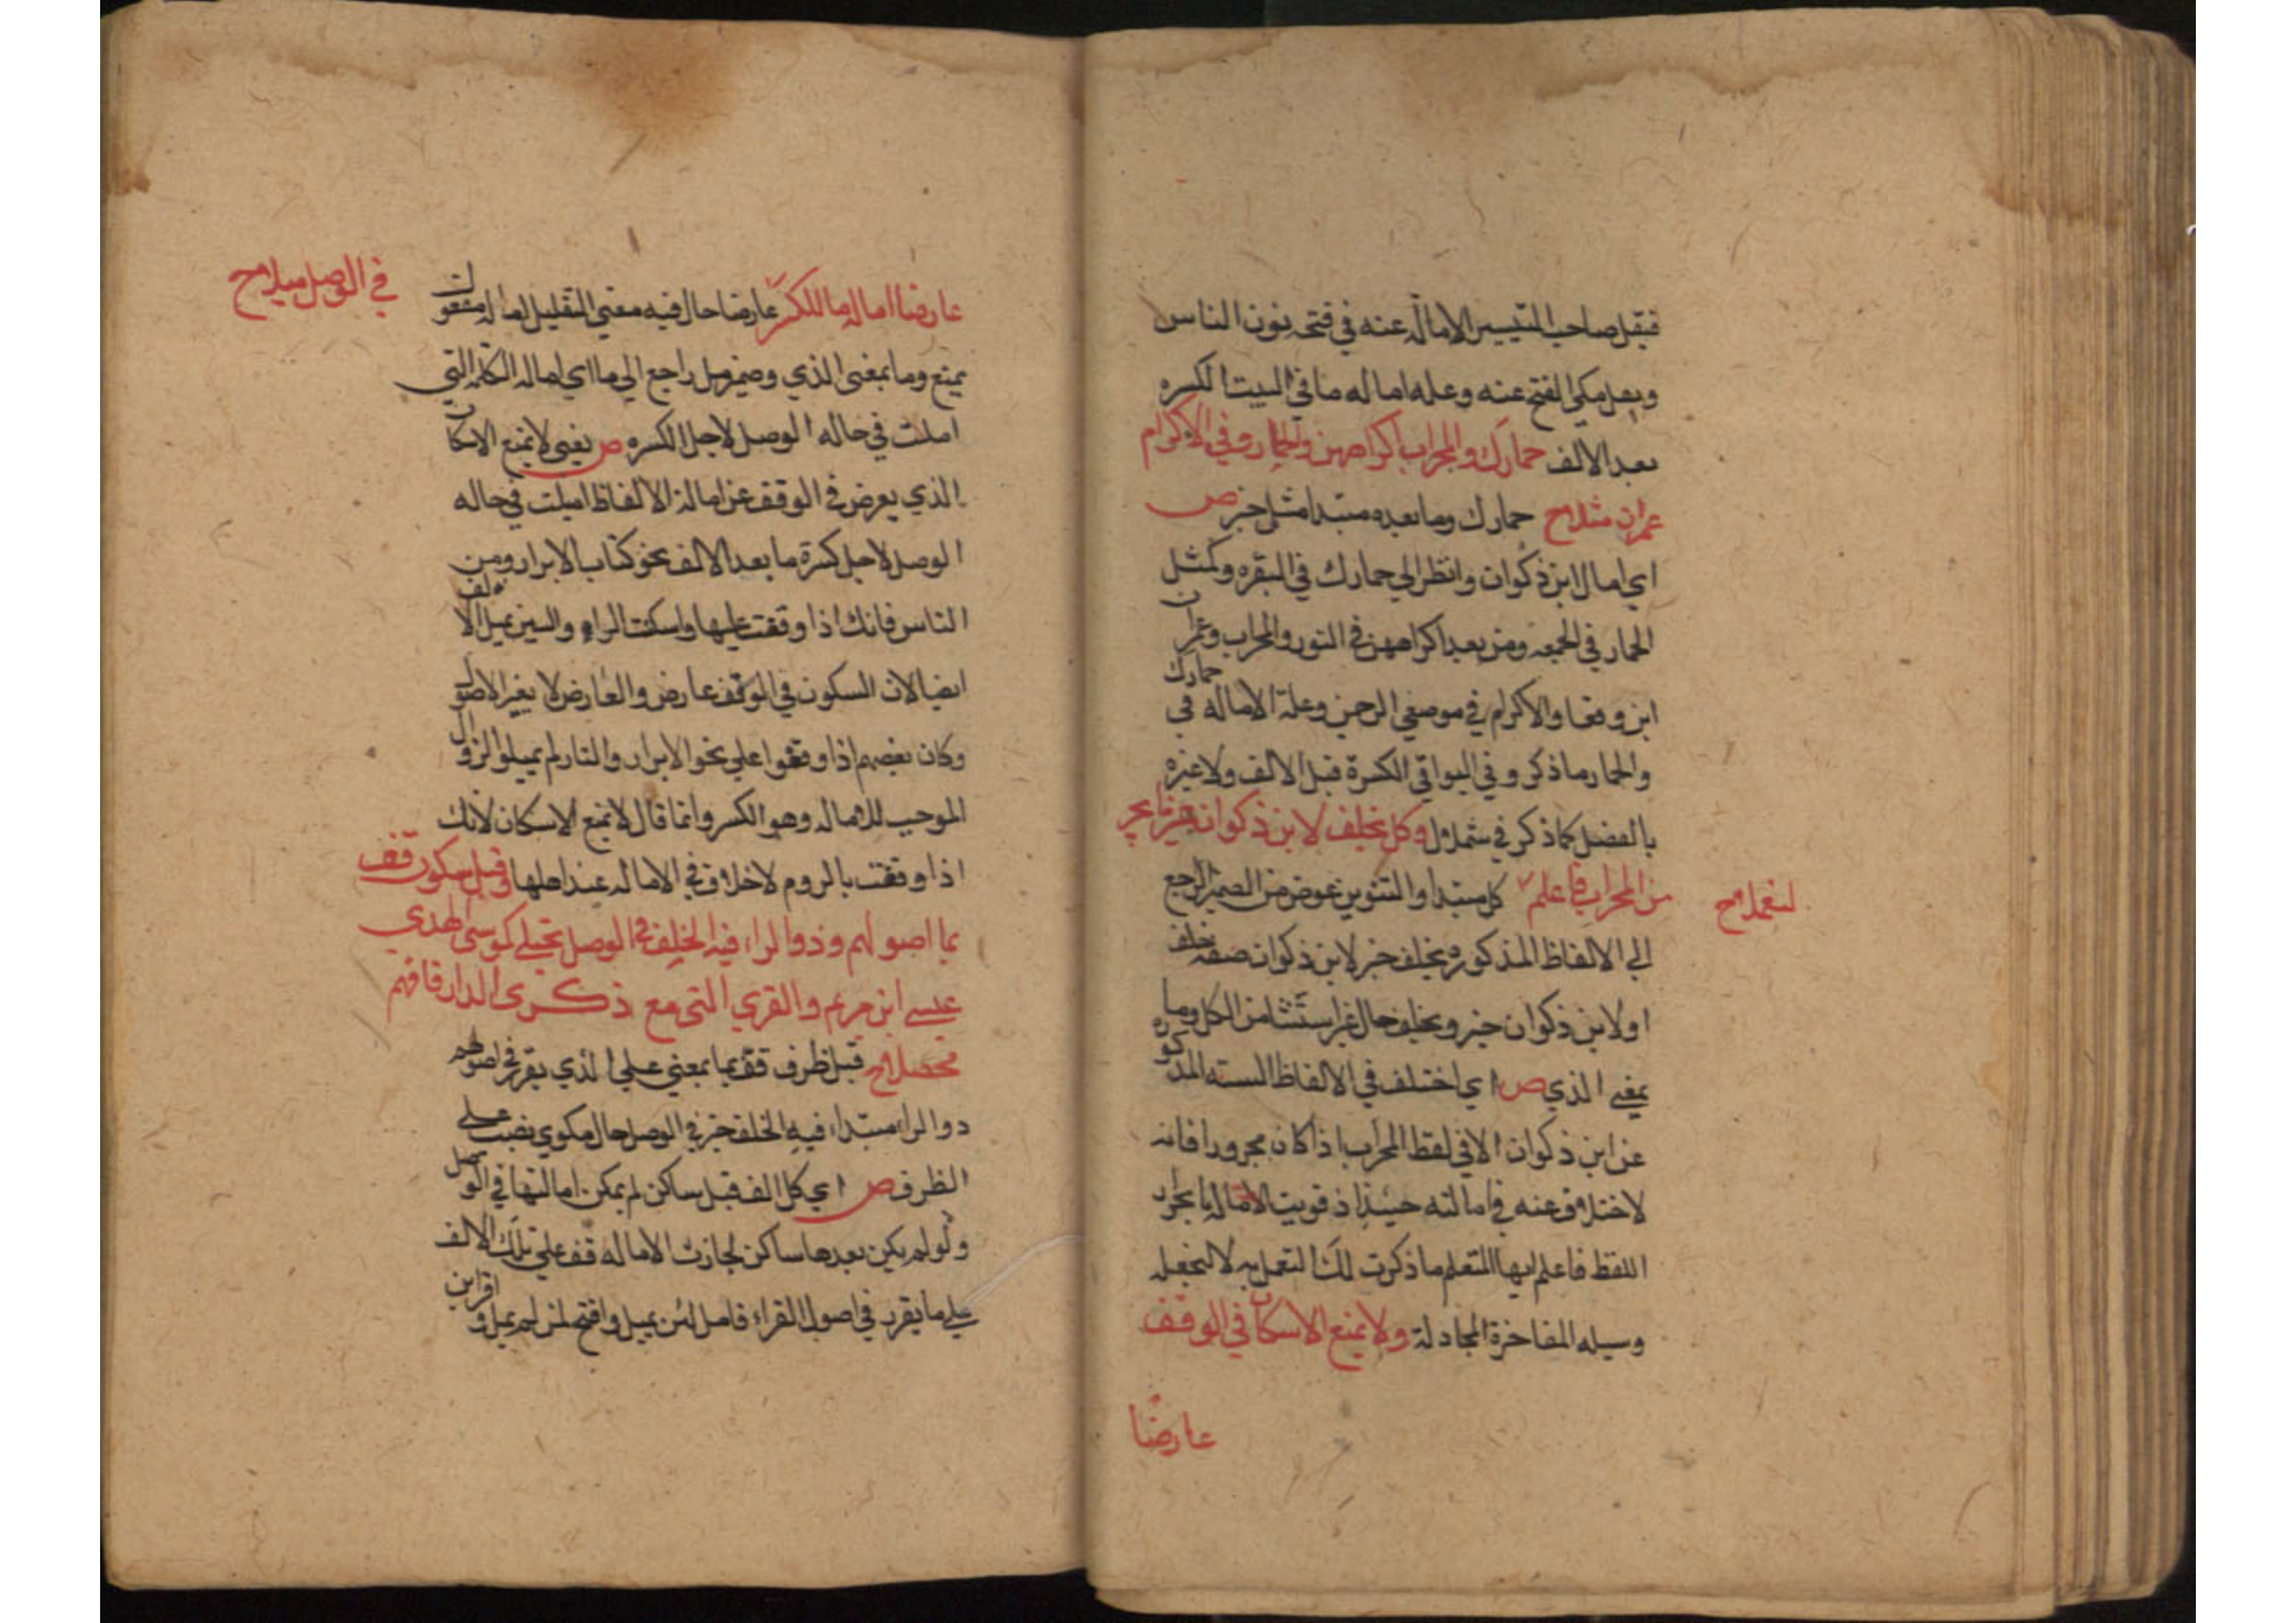 فنقل صاحب التيسير الامالة عنه في فتحه نون الناس
ونقل مكي الفتح عنه وعله اماله ما في البيت الكسره
بعد الالف حمارك والمحراب اكراههن والحمار وفي الاكرام
عمران مثلا ح حمارك وما بعده مبتدا مثل خبر ص
اي امال ابن ذكوان وانظر الي حمارك في البقره وكمثل
الحمار في الجمعه ومن بعد اكراههن في النور والمحراب وعمران
ابن وقعا والاكرام في موضعي الرحمن وعلة الاماله في حمارك
والحمار ما ذكر وفي البواقي الكسرة قبل الالف ولا عبره
بالفصل كما ذكر في شملال وكل بخلف لابن ذكوان غير ما يجر
من المحراب فاعلم كل مبتدا والتنوين عوض من الضمير الراجع
لتعملا ح
الي الالفاظ المذكوره بخلف خبر لابن ذكوان صفه خلف
او لابن ذكوان خبر وبخلف حال غير استثنا من الكل وما
بمعني الذي ص اي اختلف في الالفاظ السته المذكوره
عن ابن ذكوان الا في لفظ المحراب اذا كان مجرورا فانه
لا خلاف عنه في امالته حينئذ اذ قويت الامالة بانجرار
اللفظ فاعلم ايها المتعلم ما ذكرت لك لتعمل به لا لتجعله
وسيله المفاخرة المجادلة ولا يمنع الاسكان في الوقف
عارضا
عارضا امالة ما للكسر عارضا حال فيه معني التقليل اماله مفعول
في الوصل ميلا ح
يمنع وما بمعني الذي وضمير ميل راجع الي ما اي اماله الكلمه التي
اميلت في حاله الوصل لاجل الكسره ص يعني لا يمنع الاسكان
الذي يعرض في الوقف عن امالة الالفاظ اميلت في حاله
الوصل لاجل كسرة ما بعد الالف نحو كتاب الابرار ومن
الناس فانك اذا وقفت عليها واسكنت الراء والسين يميل الالف
ايضا لان السكون في الوقف عارض والعارض لا يغير الاصول
وكان بعضهم اذا وقفوا علي نحو الابرار والنار لم يميلوا لزوال
الموجب للاماله وهو الكسر وانما قال لا يمنع الاسكان لانك
اذا وقفت بالروم لا خلاف في الاماله عند اهلها وقبل سكون قف
بما اصولهم وذو الراء فيه الخلف في الوصل يجتلي كموسي الهدي
عيسي ابن مريم والقري التي مع ذكري الدار فافهم
محصلا ح قبل ظرف قف بما بمعني علي الذي يقرر في اصولهم
ذو الراء مبتداء فيه الخلف خبر في الوصل حال مكوي نصب علي
الظرف ص اي كل الف قبل ساكن لم يمكن امالتها في الوصل
ولو لم يكن بعدها ساكن لجازت الاماله قف علي تلك الالف
علي ما يقرر في اصول القراء فامل لمن يميل وافتح لمن لم يمل واقرا بين